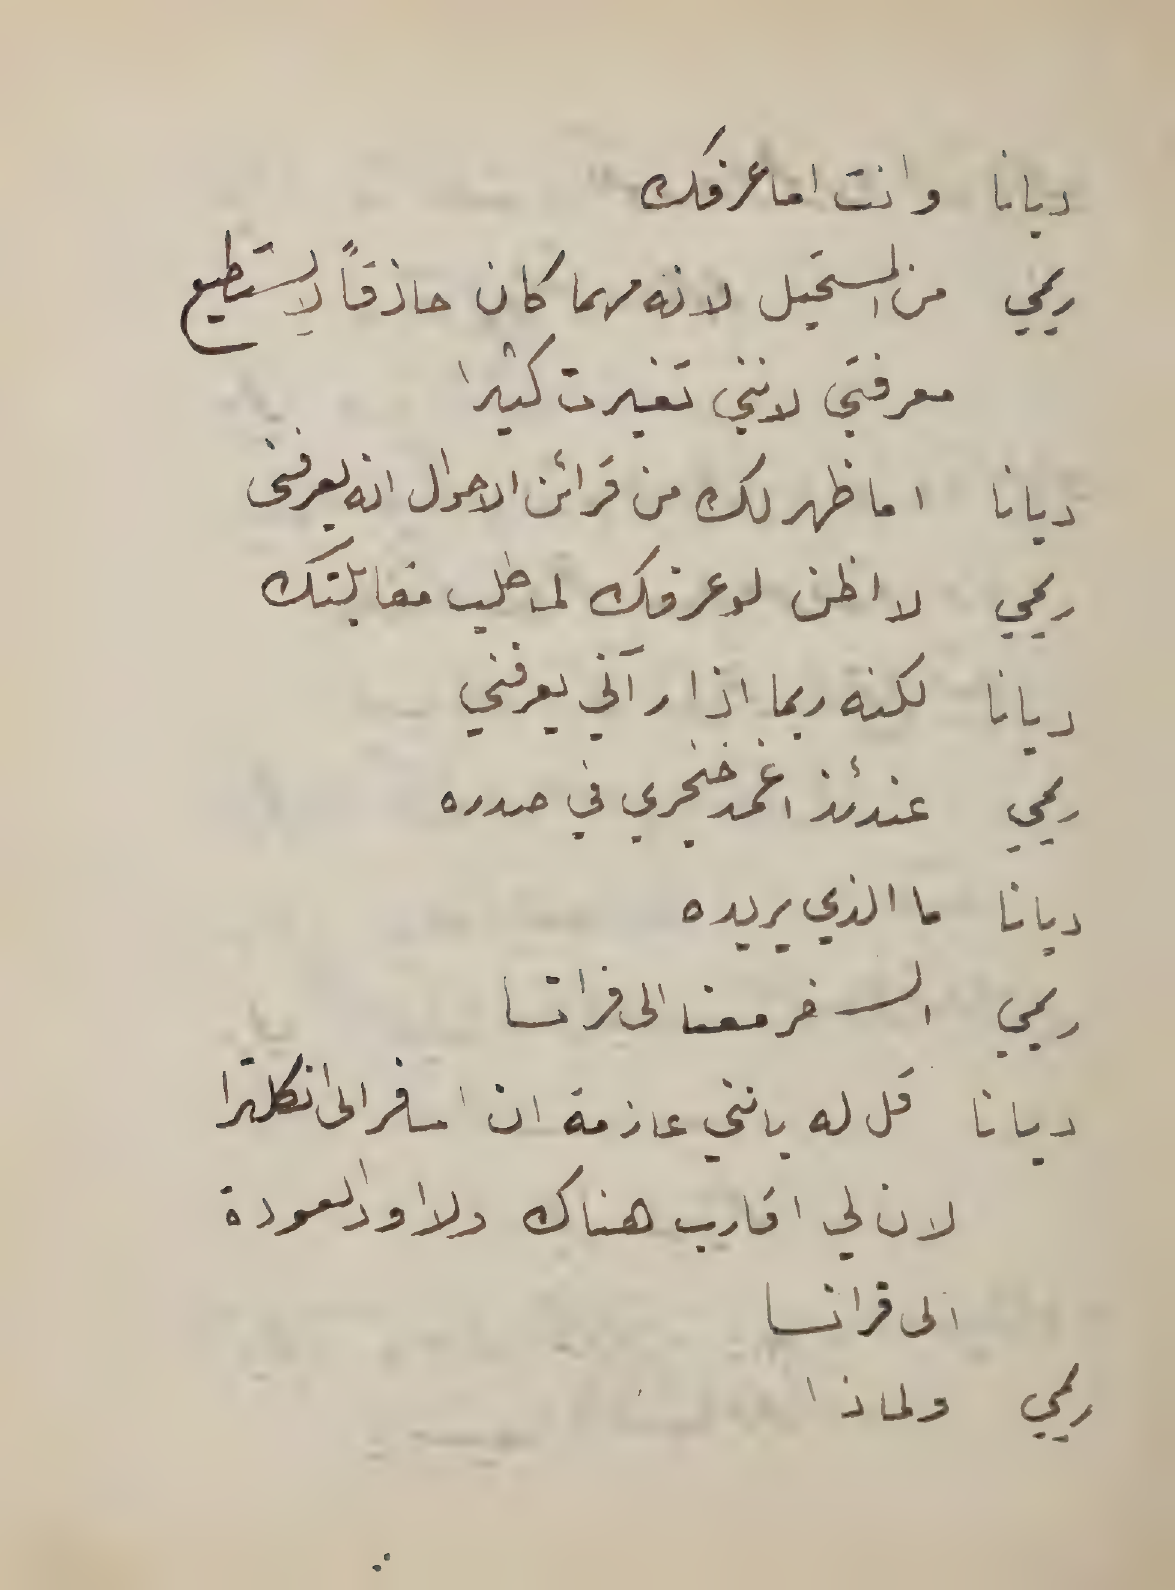 ديانا وانت اما عرفك
ريمي من المستحيل لانه مهما كان حاذقاً لا يستطيع
معرفتي لانني تغيرت كثيرا
ديانا اما ظهر لك من قرائن الاحوال انه يعرفني
ريمي لا اظن لو عرفك لما طلب مقابلتك
ديانا لكنه ربما اذا رآني يعرفني
ريمي عندئذ اغمد خنجري في صدره
ديانا ما الذي يريده
ريمي السفر معنا الى فرانسا
ديانا قل له بانني عازمة ان اسافر الى انكلترا
لان لي اقارب هناك ولا اود العودة
الى فرانسا
ريمي ولماذا